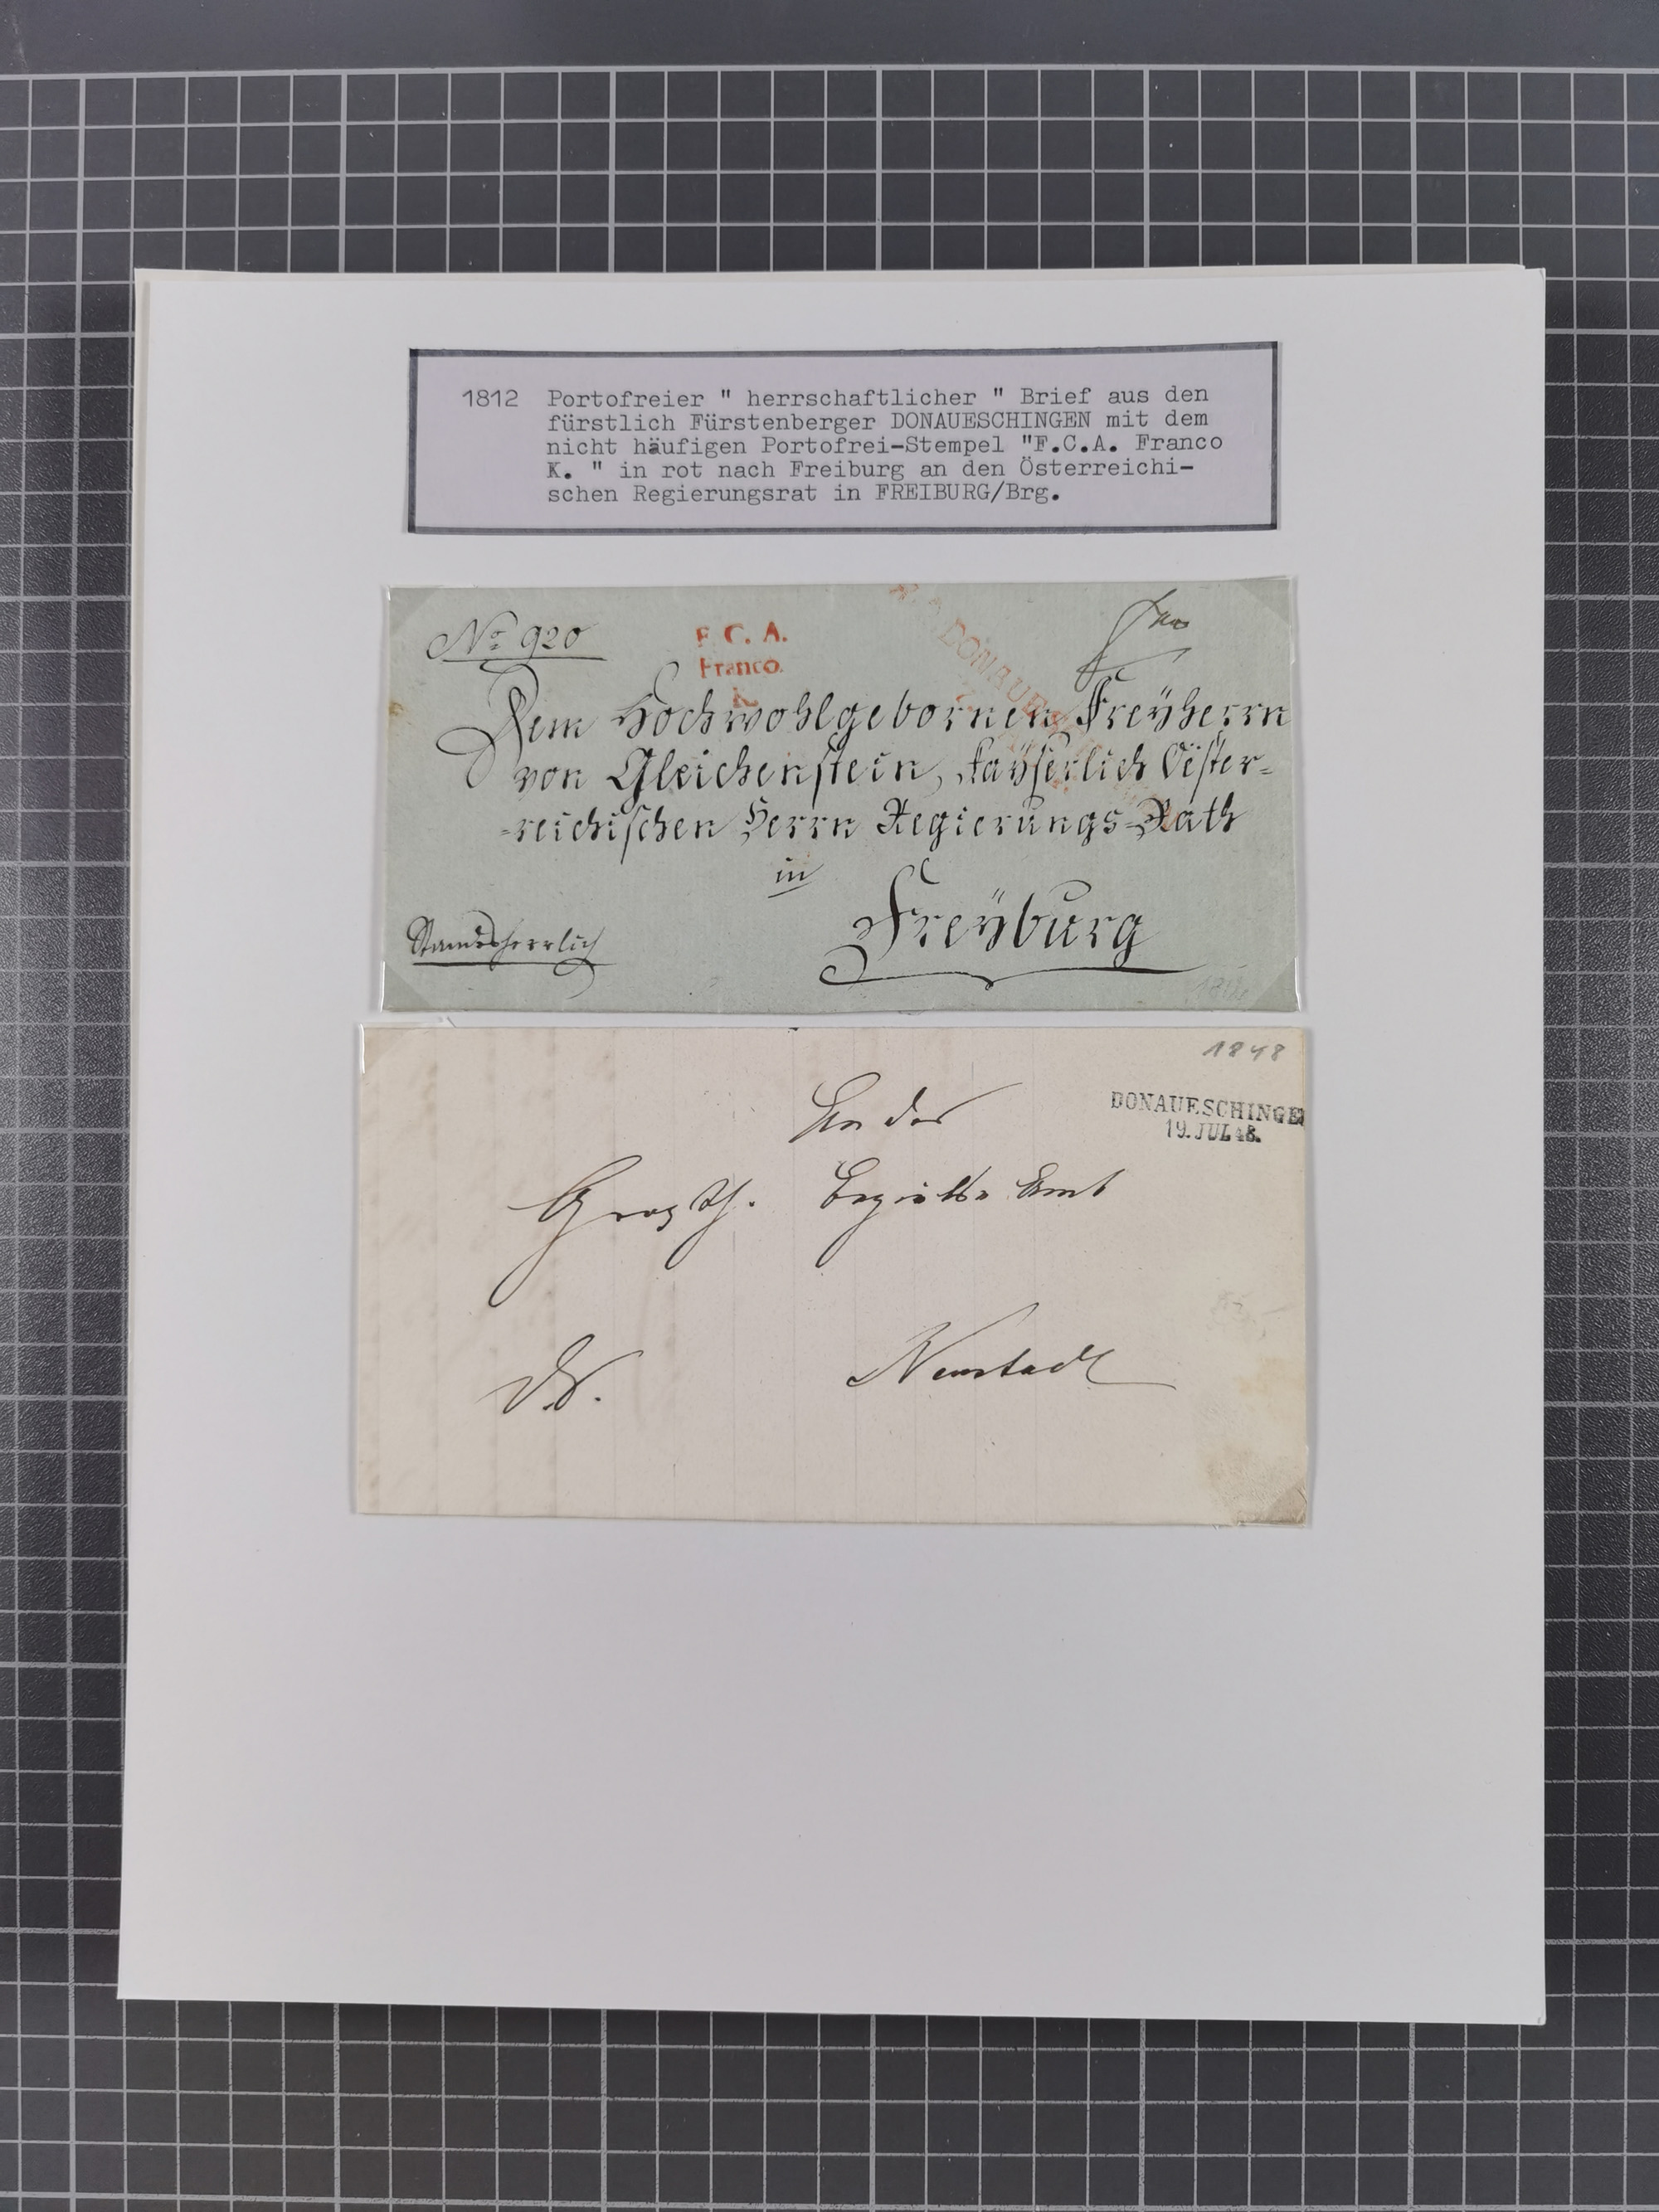 1812 Portofreier " herrschaftlicher " Brief aus den
fürstlich Fürstenberger DONAUESCHINGEN mit dem
nicht häufigen Portofrei-Stempel "F.C.A. Franco
K. " in rot nach Freiburg an den Österreichi-
schen Regierungsrat in FREIBURG/Brg.
No 920
F. C. A.
Franco.
K.
Dem Hochwohlgebornen Freÿherrn
von Gleichenstein, kaÿserlich Oester=
=reichischen Herrn Regierungs-Rath
in
Standesherrlich
Freÿburg
1812
1848
DONAUESCHINGEN
19. JUL 48.
An das
Großh. Bezirks Amt
D.S.
Neustadt